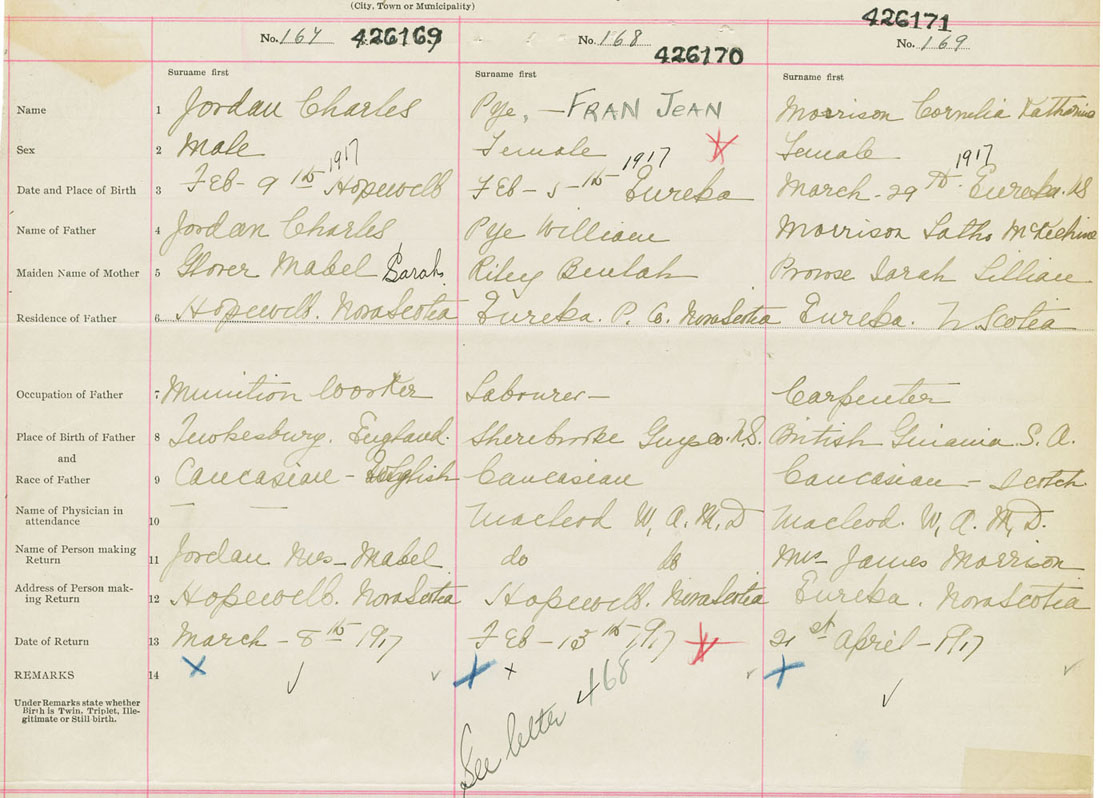 (City, Town or Municipality)
No. 167 426169 No. 168 426170 426171 No. 169
Surname first Surname first Surname first
Name 1 Jordan Charles Pye, - FRAN JEAN Morrison Cornelia Katharine
Sex 2 Male Female Female
Date and Place of Birth 3 Feb - 9th 1917 Hopewell Feb - 5th 1917 Eureka March - 29th 1917 Eureka. NS
Name of Father 4 Jordan Charles Pye William Morrison
Maiden Name of Mother 5 Glover Mabel Sarah Riley Beulah Prowse Sarah Lillian
Residence of Father 6 Hopewell. Nova Scotia Eureka. P. Co. Nova Scotia Eureka. N Scotia
Occupation of Father 7 Munition Worker Labourer - Carpenter
Place of Birth of Father 8 Tewkesbury. England. Sherebrooke Guys co. N.S. British Guiania S. A.
and
Race of Father 9 Caucasian - English Caucasian Caucasian - Scotch.
Name of Physician in
attendance 10 — — Macleod W, A. M, D Macleod. W, A. M, D.
Name of Person making
Return 11 Jordan Mrs - Mabel do do Mrs James Morrison
Address of Person mak-
ing Return 12 Hopewell. Nova Scotia Hopewell. Nova Scotia Eureka. Nova Scotia
Date of Return 13 March - 8th 1917 Feb - 13th, 1917 21st April - 1917
REMARKS 14
Under Remarks state whether
Birth is Twin, Triplet, Ille-
gitimate or Still-birth.
See letter 468